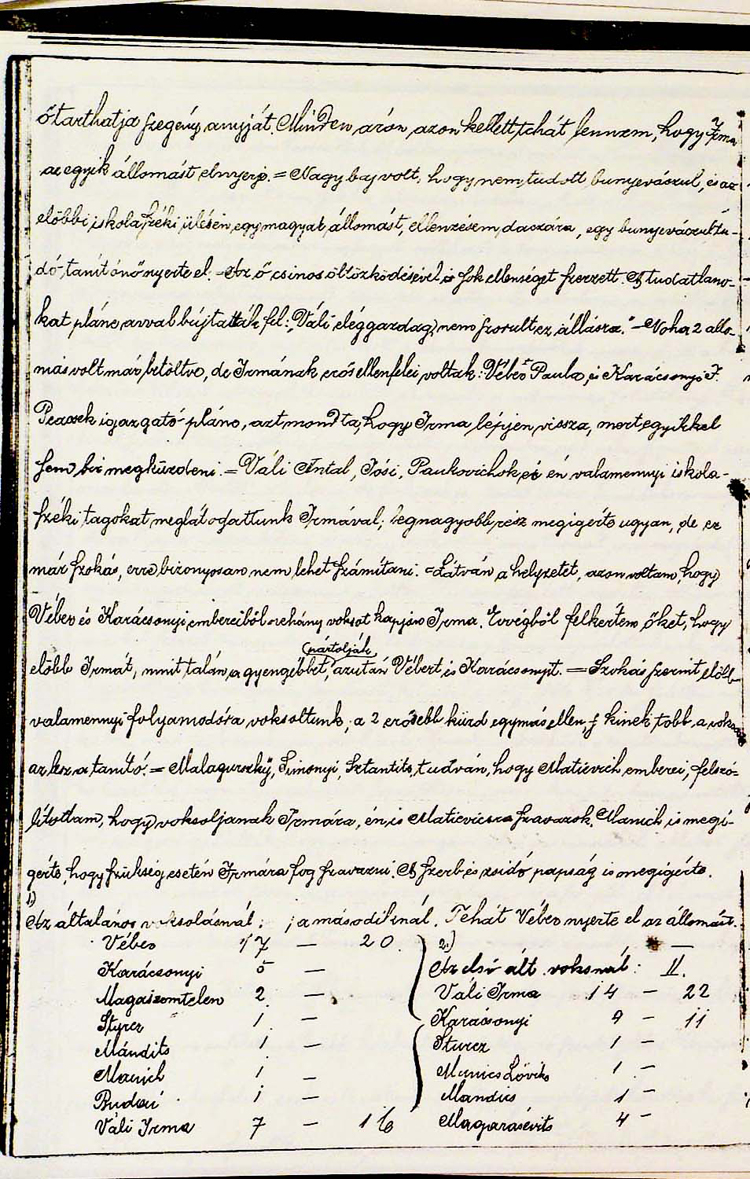 ő tarthatja szegény anyját. Minden áron azon kellett tehát lennem, hogy Irma
az egyik állomást elnyerje. = Nagy baj volt, hogy nem tudott bunyevácul, és az
előbbi iskolaszéki ülésen, egy magyar állomást, ellenzésem daczára, egy bunyevácul tu-
dó tanítónő nyerte el. - Az ő csinos öltözködésével is sok ellenséget szerzett. A tudatlano-
kat pláne avval bújtatták fel: "Váli elég gazdag, nem szorult ez állásra." - Noha 2 állo-
más volt már betöltve, de Irmának erős ellenfelei voltak: Véber Paula, és Karácsonyi I.
igazgató pláne, azt mondta, hogy Irma lépjen vissza, mert egyikkel
sem bir megküzdeni. = Váli Antal, Jósi, Paukovichok és én valamennyi iskola-
széki tagokat meglátogattunk Irmával; legnagyobb rész megigérte ugyan, de ez
már szokás, erre bizonyosan nem lehet számítani. = Látván a helyzetet, azon voltam, hogy
Véber és Karácsonyi embereiből nehány voksot kapjon Irma. Evvégből felkértem őket, hogy
pártolják
előbb Irmát, mint talán a gyengébbet, azután Vébert és Karácsonyit. = Szokás szerint előbb
valamennyi folyamodóra voksoltunk, a 2 erősebb küzd egymás ellen, s kinek több a voksa
az lesz a tanító. = Malagurszky, Simonyi, Sztantits, tudván, hogy Matievich emberei, felszó-
lítottam, hogy voksoljanak Irmára, én is Matievicsra szavazok. Manich is megi-
gérte, hogy szükség esetén Irmára fog szavazni. A szerb és zsidó papság is megigérte.
1)
Az általános voksolásnál: ; a másodiknál. Tehát Véber nyerte el az állomást.
Véber 17 — 20.
Karácsonyi 5 —
Magaszentelen 2 —
1 —
Mándits 1 —
Manich 1 —
Budai 1 —
Váli Irma 7 — 16
2.)
Az első ált. voksnál: II.
Váli Irma 14 — 22
Karácsonyi 9 — 11
Sturcz 1 —
Munics Lövik 1 —
Mandics 1 —
Magarásevits 4 —